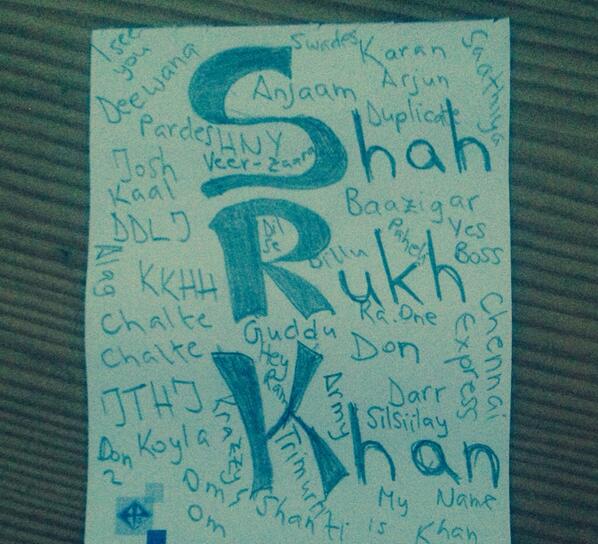 I see
you
Deewana
Swades
Karan
Arjun
Saathiya
Anjaam
Duplicate
Pardes
HNY
Veer-Zaara
Shah
Josh
Kaal
Baazigar
DDLJ
Dil
Se
Billu
Paheli
Yes
Boss
Rukh
Alag
KKHH
Ra.One
Chalte
Chalte
Guddu
Hey
Ram
Don
Chennai
Express
JTHJ
Army
Darr
Silsiilay
Khan
Don
2
Koyla
Krazzy4
Trimurti
Om
Shanti
Om
My Name
is Khan